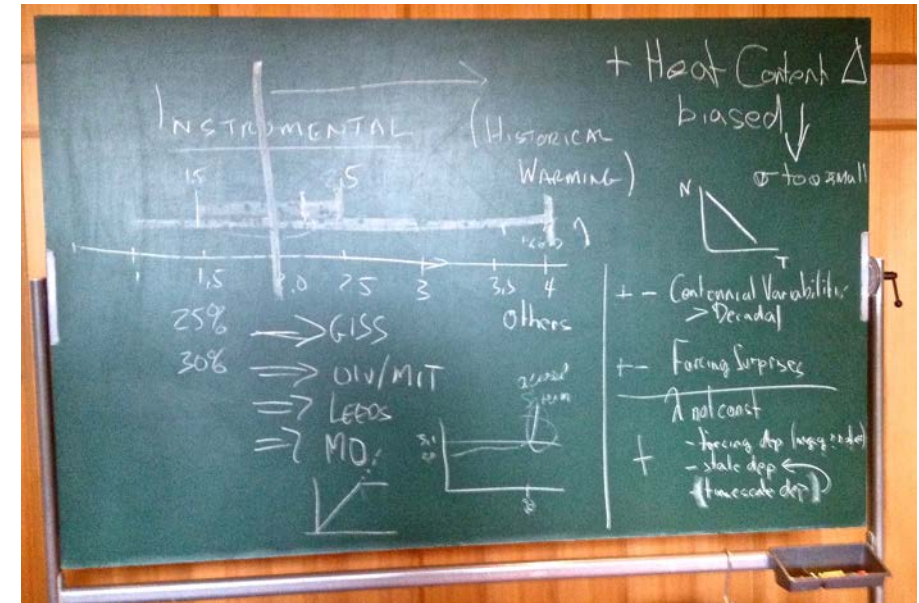 INSTRUMENTAL
(HISTORICAL
WARMING)
1.5
2.5
1
1.5
2.0
2.5
3
3.5
4
25%
⇒ GISS
Others
30%
⇒ UIV/MIT
⇒ LEEDS
⇒ MO
+ Heat Content Δ
biased
σ too small
N
T
+ - Centennial Variability
> Decadal
+ - Forcing Surprises
λ not const
+
- forcing dep
- state dep
(timescale dep)